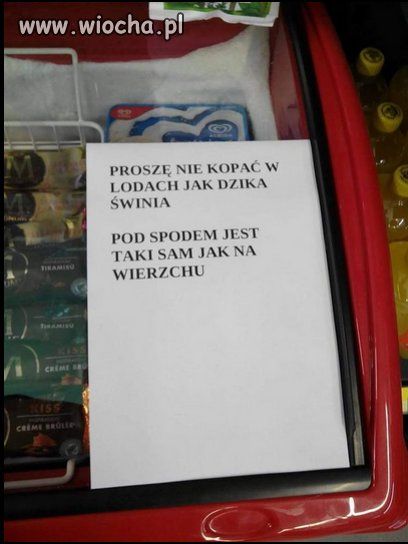 www.wiocha.pl
PROSZĘ NIE KOPAĆ W
LODACH JAK DZIKA
ŚWINIA
POD SPODEM JEST
TAKI SAM JAK NA
WIERZCHU
TIRAMISÙ
TIRAMISÙ
KISS
CRÈME BRÛLÉE
KISS
CRÈME BRÛLÉE